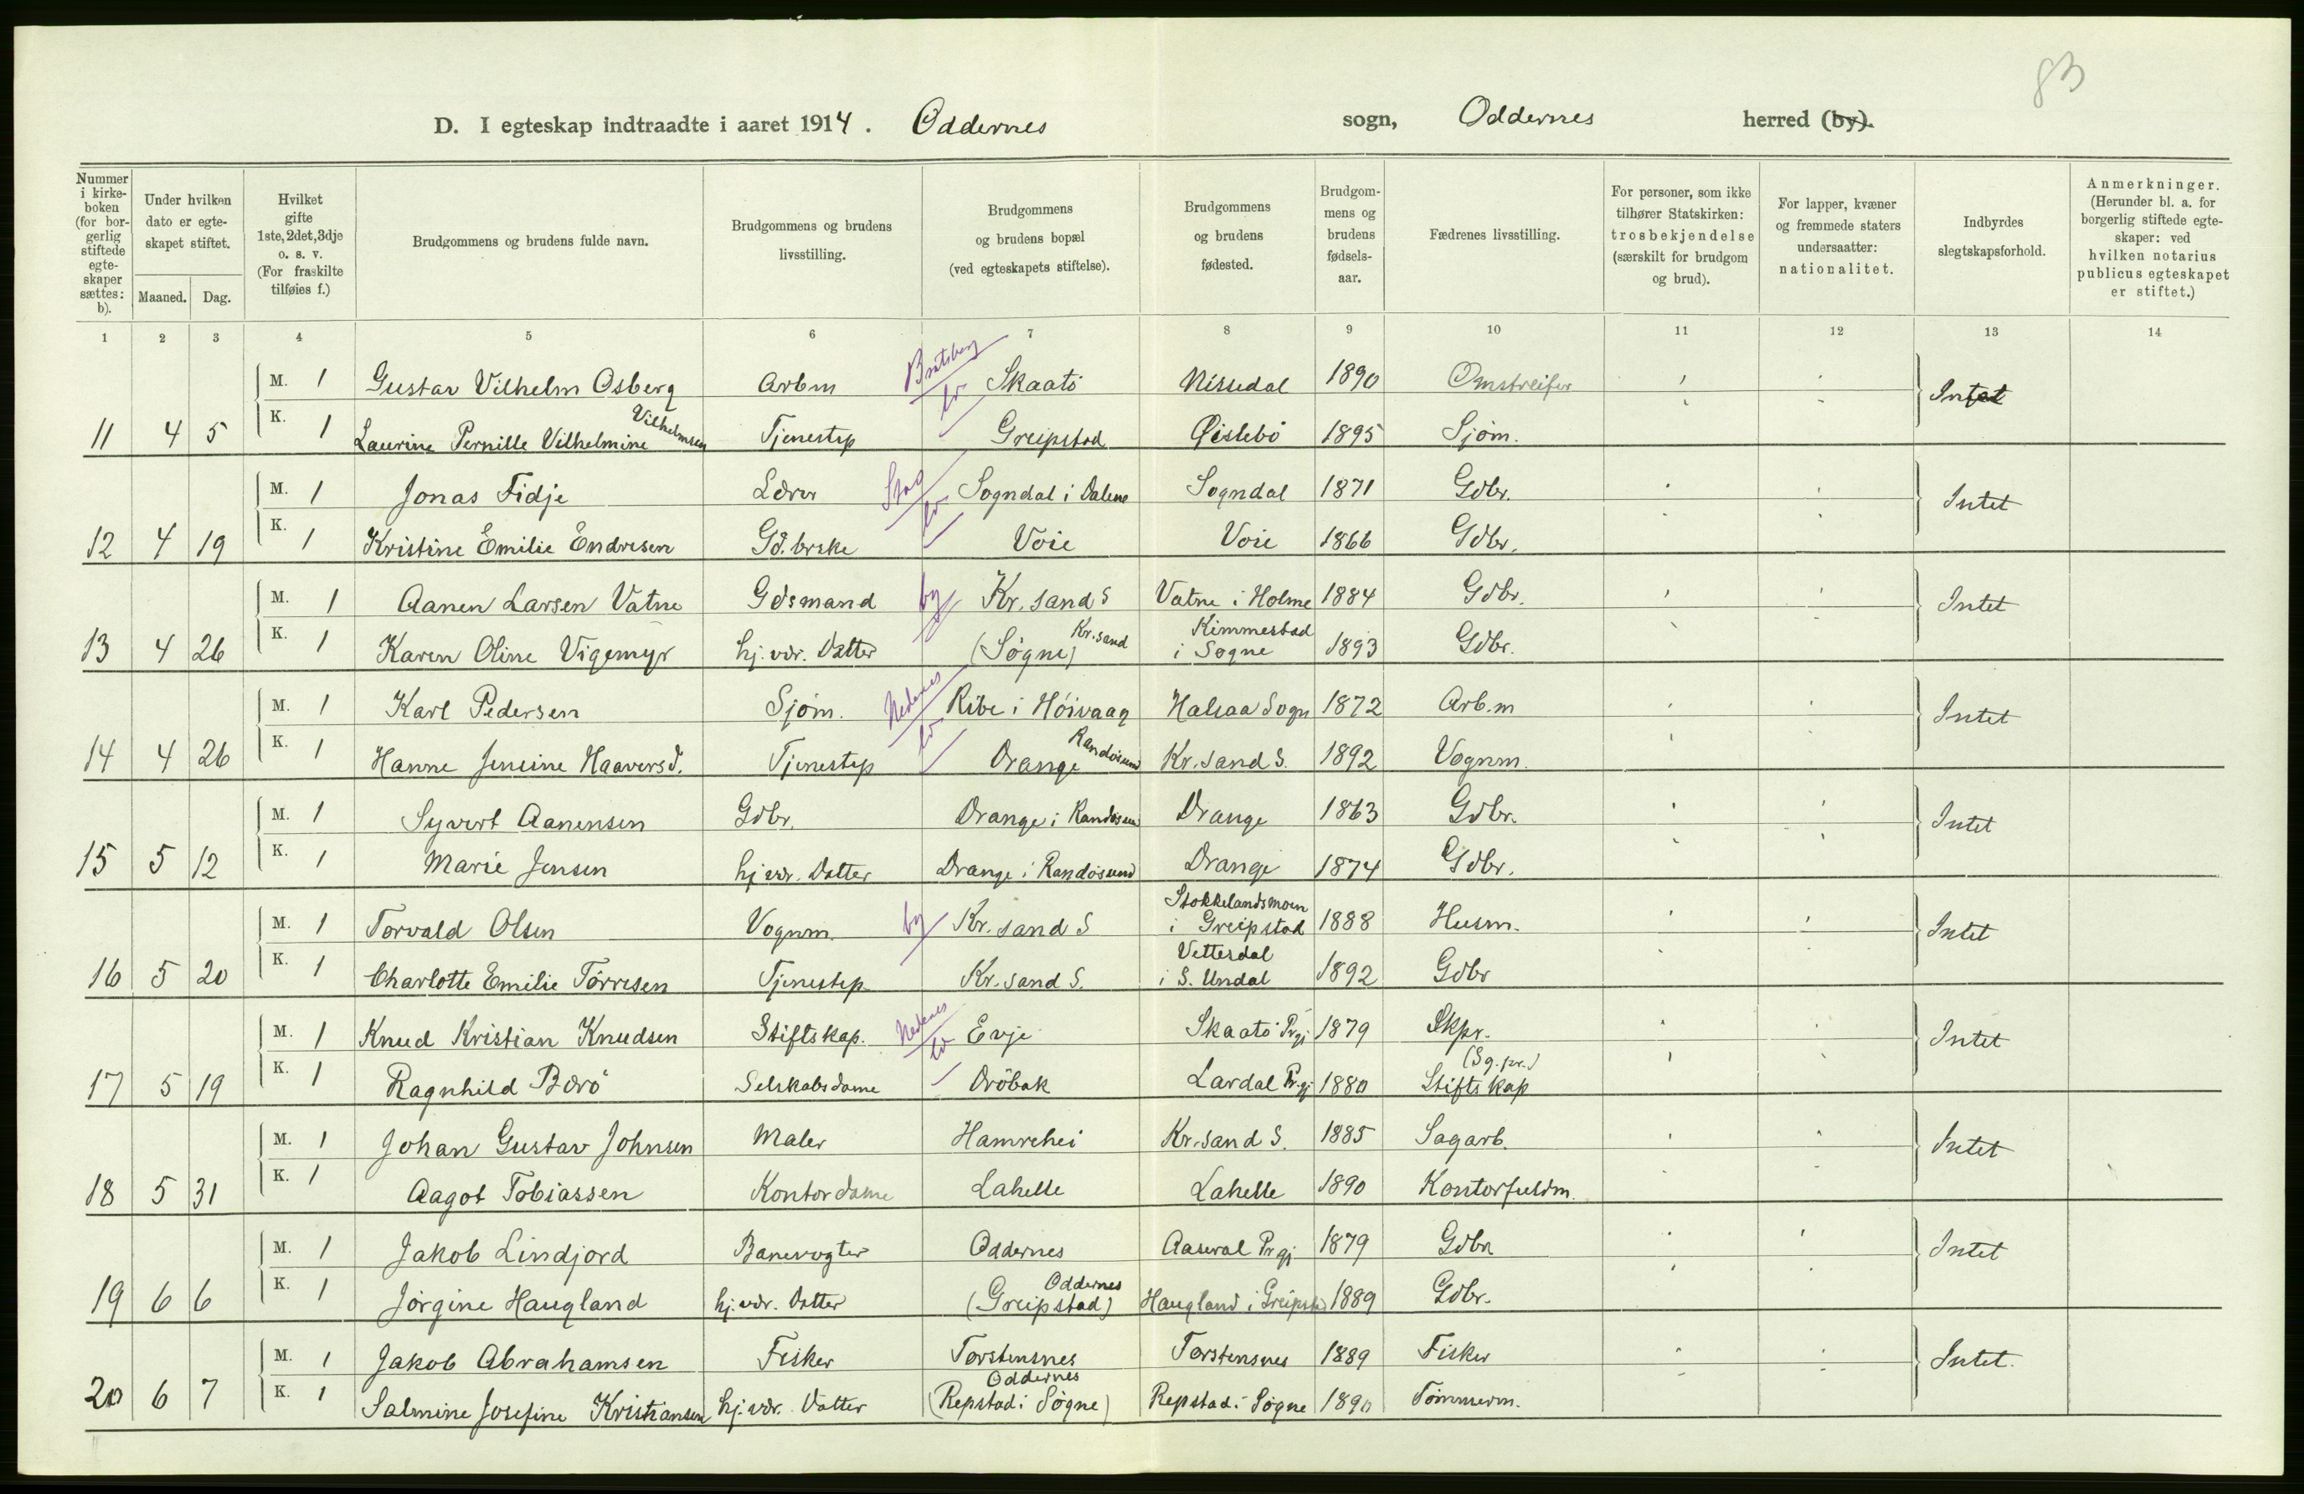 83
D. I egteskap indtraadte i aaret 1914. Oddernes sogn, Oddernes herred (by).
Nummer i kirkeboken (for borgerlig stiftede egteskaper sættes: b).
Under hvilken dato er egteskapet stiftet.
Maaned. Dag.
Hvilket gifte 1ste, 2det, 3dje o. s. v. (For fraskilte tilføies f.)
Brudgommens og brudens fulde navn.
Brudgommens og brudens livsstilling.
Brudgommens og brudens bopæl (ved egteskapets stiftelse).
Brudgommens og brudens fødested.
Brudgommens og brudens fødselsaar.
Fædrenes livsstilling.
For personer, som ikke tilhører Statskirken: trosbekjendelse (særskilt for brudgom og brud).
For lapper, kvæner og fremmede staters undersaatter: nationalitet.
Indbyrdes slegtskapsforhold.
Anmerkninger. (Herunder bl. a. for borgerlig stiftede egteskaper: ved hvilken notarius publicus egteskapet er stiftet.)
1 2 3 4 5 6 7 8 9 10 11 12 13 14
M. 1 Gustav Vilhelm Osberg Arbm Bratsberg Skaatö Nissedal 1890 Omstreifer Intet
11 4 5 K. 1 Laurine Pernille Vilhelmine Vilhelmsen Tjenestep Greipstad Øislebö 1895 Sjöm.
M. 1 Jonas Fidje Lærer Stav Sogndal i Dalene Sogndal 1871 Gdbr. Intet
12 4 19 K. 1 Kristine Emilie Endresen Gd.brske Voie Voie 1866 Gdbr.
M. 1 Aanen Larsen Vatne Gdsmand by Kr.sand S Vatne i Holme 1884 Gdbr. Intet
13 4 26 K. 1 Karen Oline Vigemyr hj.vær. Datter Kr.sand (Søgne) Kimmestad i Søgne 1893 Gdbr.
M. 1 Karl Pedersen Sjöm. Nedenes Ribe i Höivaag Halsaa Sogn 1872 Arb.m Intet
14 4 26 K. 1 Hanne Jensine Haaversd. Tjenestep Drange Randösund Kr.sand S. 1892 Vognm.
M. 1 Syvert Aanensen Gdbr. Drange i Randösund Drange 1863 Gdbr. Intet
15 5 12 K. 1 Marie Jensen hj.vær. Datter Drange i Randösund Drange 1874 Gdbr.
M. 1 Torvald Olsen Vognm. by Kr.sand S Stokkelandsmoen i Greipstad 1888 Husm. Intet
16 5 20 K. 1 Charlotte Emilie Törresen Tjenestep Kr.sand S. Vettesdal i S. Undal 1892 Gdbr
M. 1 Knud Kristian Knudsen Stiftskap. Nedenes Evje Skaatö Prgj 1879 Skpr. Intet
17 5 19 K. 1 Ragnhild Bærö Selskabsdame Dröbak Lardal Prgj 1880 (Sg.pr.) Stiftskap
M. 1 Johan Gustav Johnsen Maler Hamrehei Kr.sand S. 1885 Sagarb. Intet
18 5 31 K. 1 Aagot Tobiassen Kontordame Lahelle Lahelle 1890 Kontorfuldm.
M. 1 Jakob Lindjord Banevogter Oddernes Aaseral Prgj 1879 Gdbr Intet
19 6 6 K. 1 Jörgine Haugland hj.vær. Datter Oddernes (Greipstad) Haugland i Greipstad 1889 Gdbr.
M. 1 Jakob Abrahamsen Fisker Torstensnes Torstensnes 1889 Fisker Intet.
20 6 7 K. 1 Salmine Josefine Kristiansen hj.vær. Datter Oddernes (Repstad i Søgne) Repstad i Søgne 1890 Tömmerm.